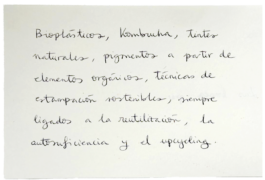 Bioplásticos, Kombucha, tintes
naturales, pigmentos a partir de
elementos orgánicos, técnicas de
estampación sostenibles, siempre
ligados a la reutilización, la
autosuficiencia y el upcycling.